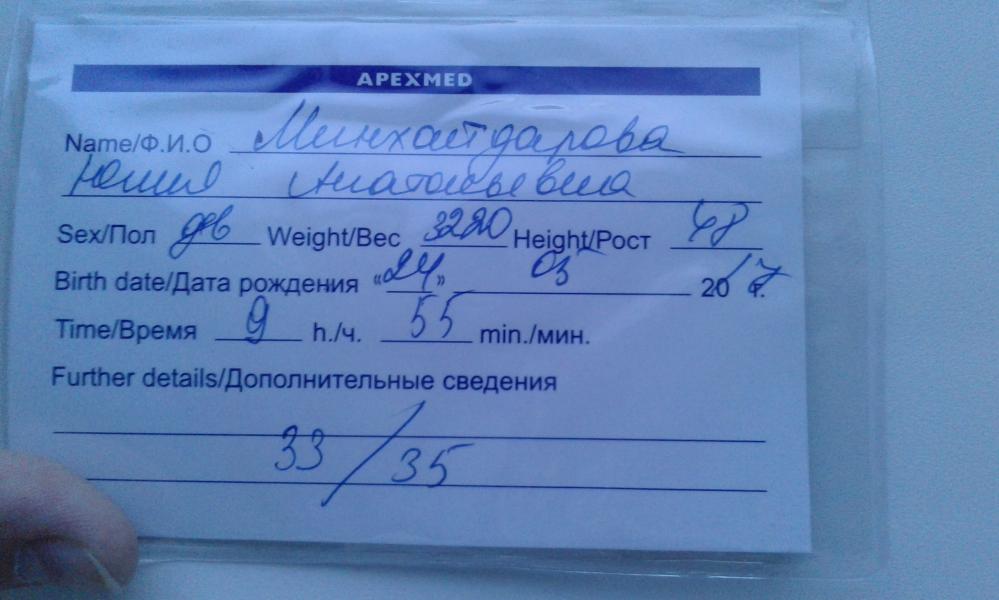 APEXMED
Name/Ф.И.О Минхайдарова
Юлия Анатольевна
Sex/Пол дев Weight/Вес 3220 Height/Рост 48
Birth date/Дата рождения «24» 05 2017 г.
Time/Время 9 h./ч. 55 min./мин.
Further details/Дополнительные сведения
33/35